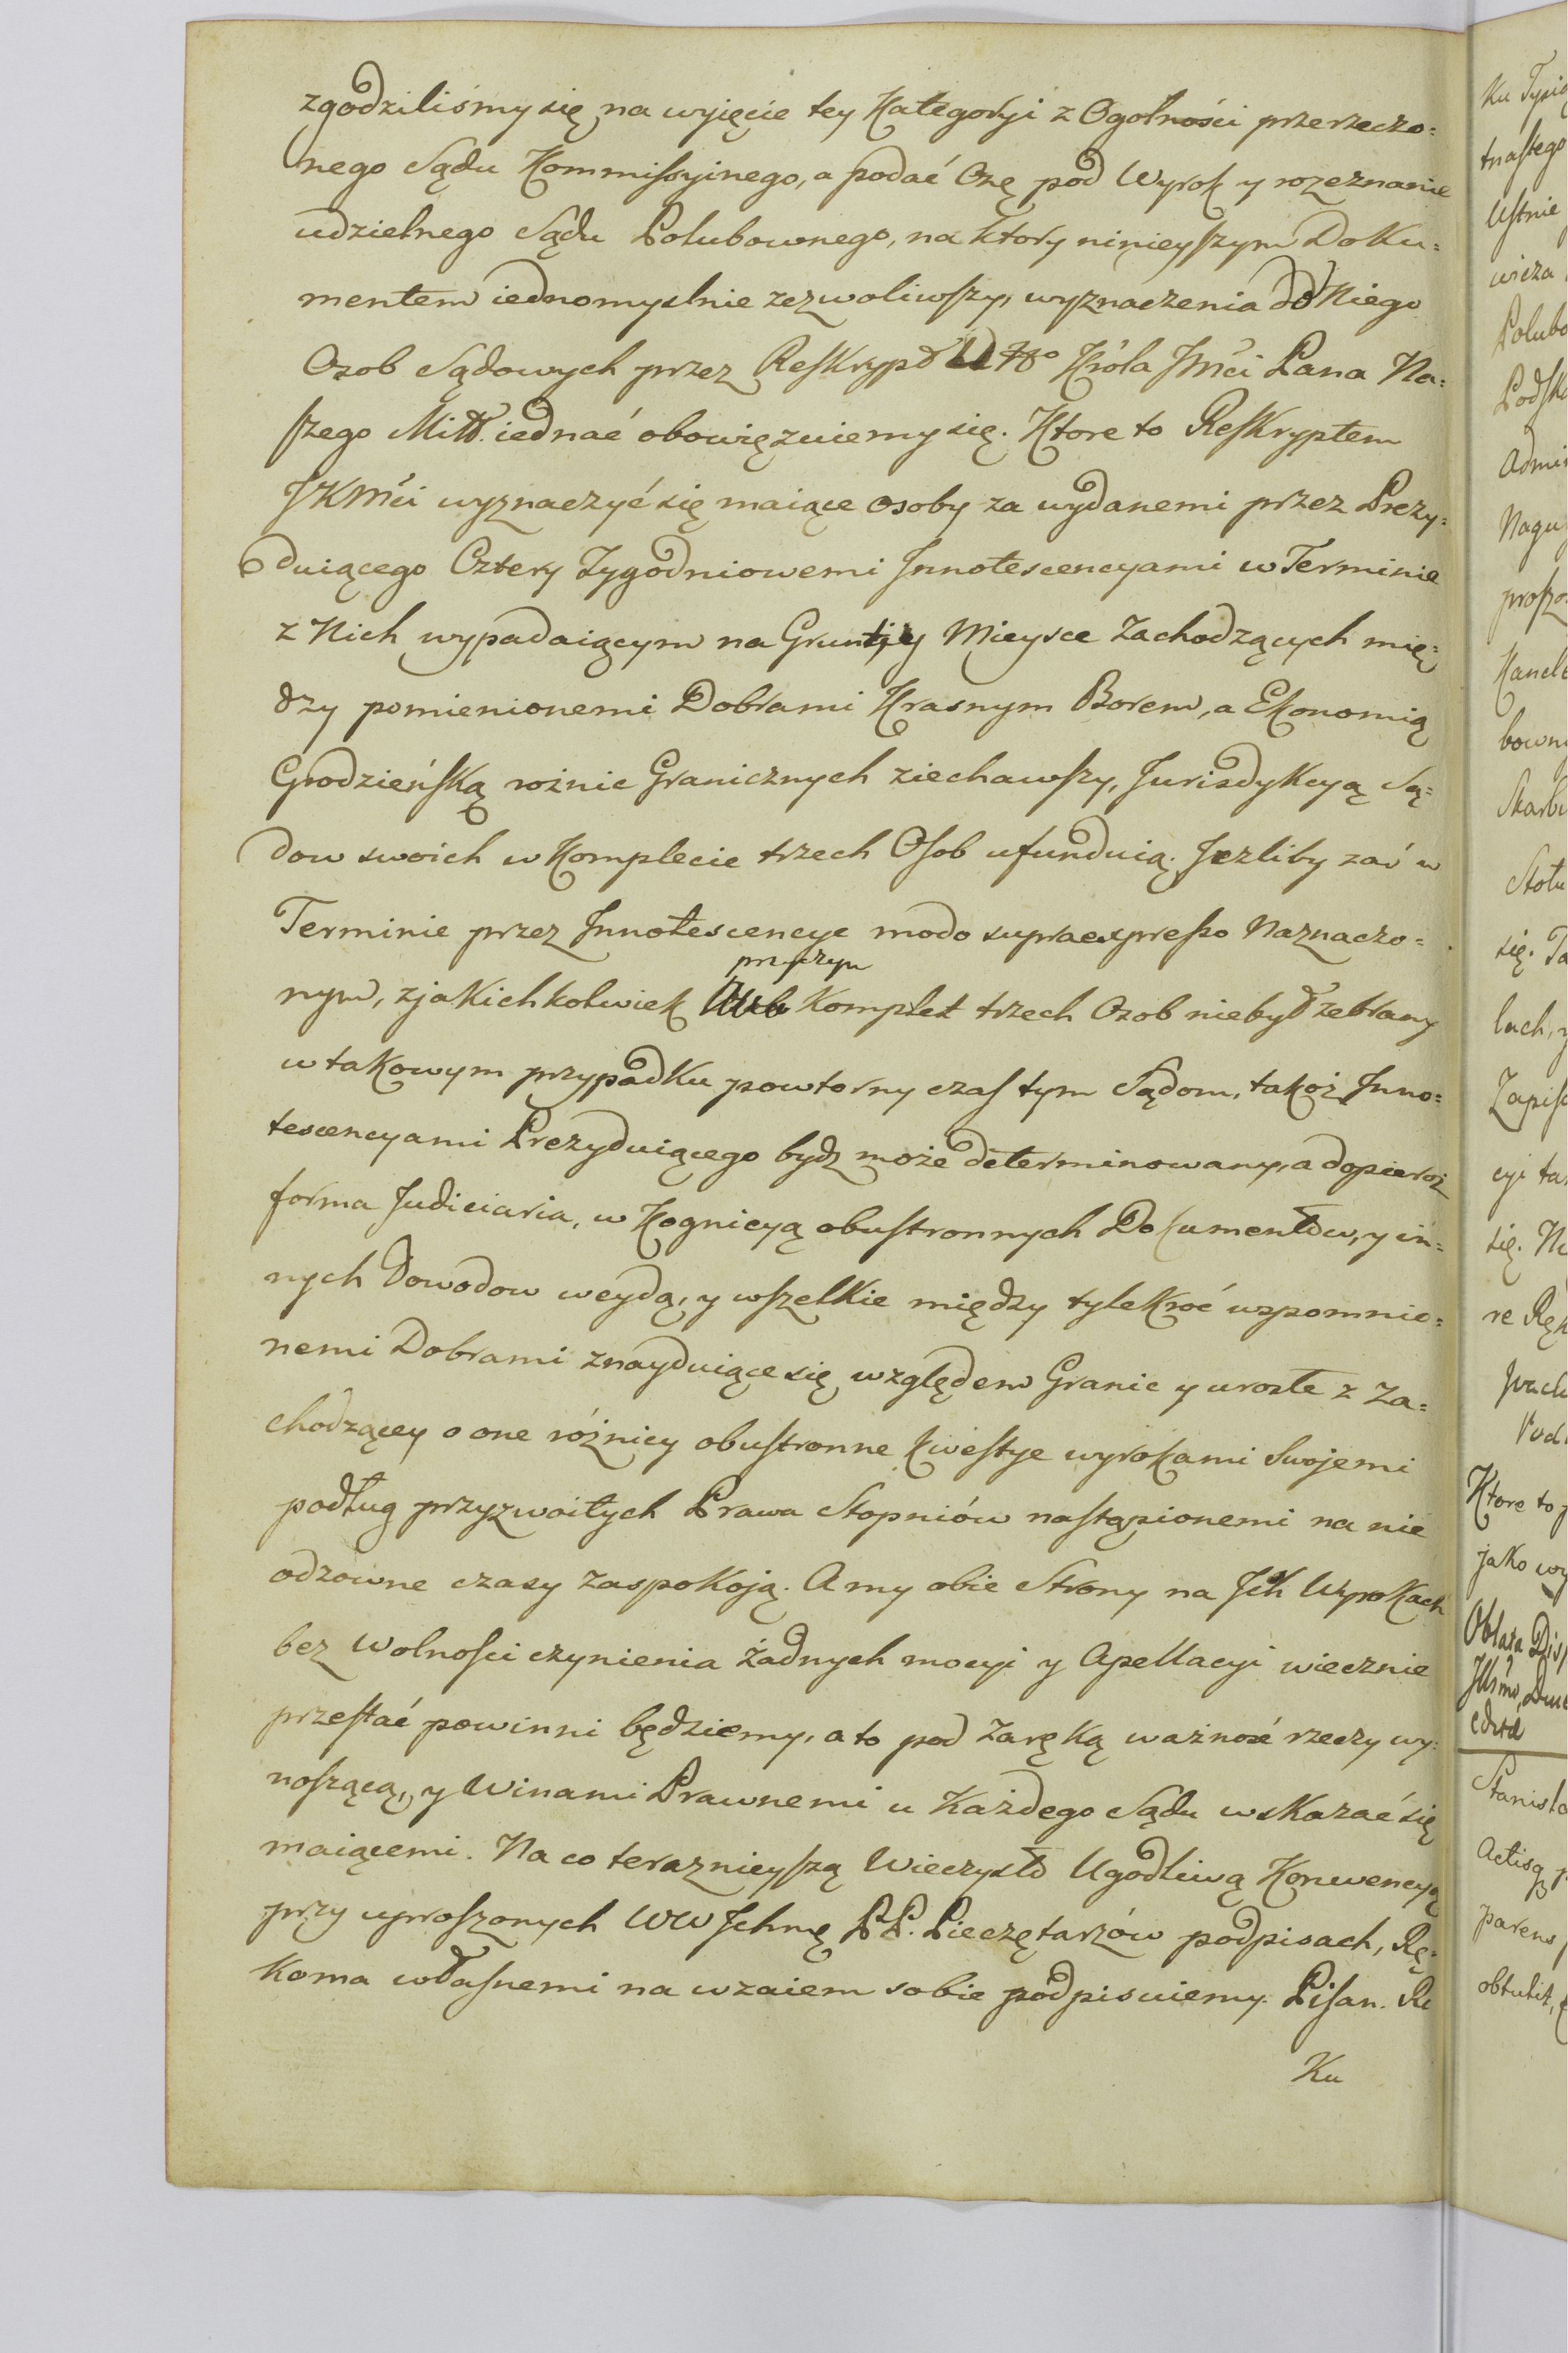 zgodziliśmy się na wyjęcie tey Kategoryi z Ogolności przerzeczo=
nego Sądu Kommissyinego, a podać Onę pod Wyrok y rozeznanie
udzielnego Sądu Polubownego, na ktory ninieyszym Doku=
mentem iednomyslnie zezwoliwszy, wyznaczenia do Niego
Osob Sądowych przez Reskrypt Króla Jmći Pana Na=
szego Miłł. iednać obowięzuiemy się. Ktore to Reskryptem
JKMći wyznaczyć się maiące osoby za wydanemi przez Prezy=
duiącego Cztery Tygodniowemi Innotescencyami w Terminie
z Nich wypadaiącym na Grunt y Mieysce Zachodzących mię=
dzy pomienionemi Dobrami Krasnym Borem, a Ekonomią
Grodzieńską rożnic Granicznych ziechawszy, Jurisdykcyą Są=
dow swoich w Komplecie trzech Osob ufunduią. Jezliby zaś w
Terminie przez Innotescencye modo supraexpresso Naznaczo=
przyczyn
nym, z jakichkolwiek Komplet trzech Osob niebył zebrany
w takowym przypadku powtorny czas tym Sądom, takoż Inno=
tescencyami Prezyduiącego bydz może determinowany, a dopieroż
forma Judiciaria, w Kognicyą obustronnych Dokumentow, y in=
nych Dowodow weydą, y wszelkie między tylekroć wspomnio=
nemi Dobrami znayduiące się względem Granic y urosłe z Za=
chodzącey o one różnicy obustronne kwestye wyrokami Swojemi
podług przyzwoitych Prawa Stopniów nastąpionemi na nie
odzowne czasy zaspokoją. A my obie Strony na Jch Wyrokach
bez Wolności czynienia żadnych mocyi y Apellacyi wiecznie
przestać powinni będziemy, a to pod Zaręką ważność rzeczy wy=
noszącą, y Winami Prawnemi u Każdego Sądu wskazać się
maiącemi. Na co terazniejszą Wieczysto Ugodliwą Konwencyą
przy uproszonych WW Jchmę PP. Pieczętarzów podpisach, Rę=
koma własnemi na wzaiem sobie podpisuiemy. Pisan. Ro
Ku